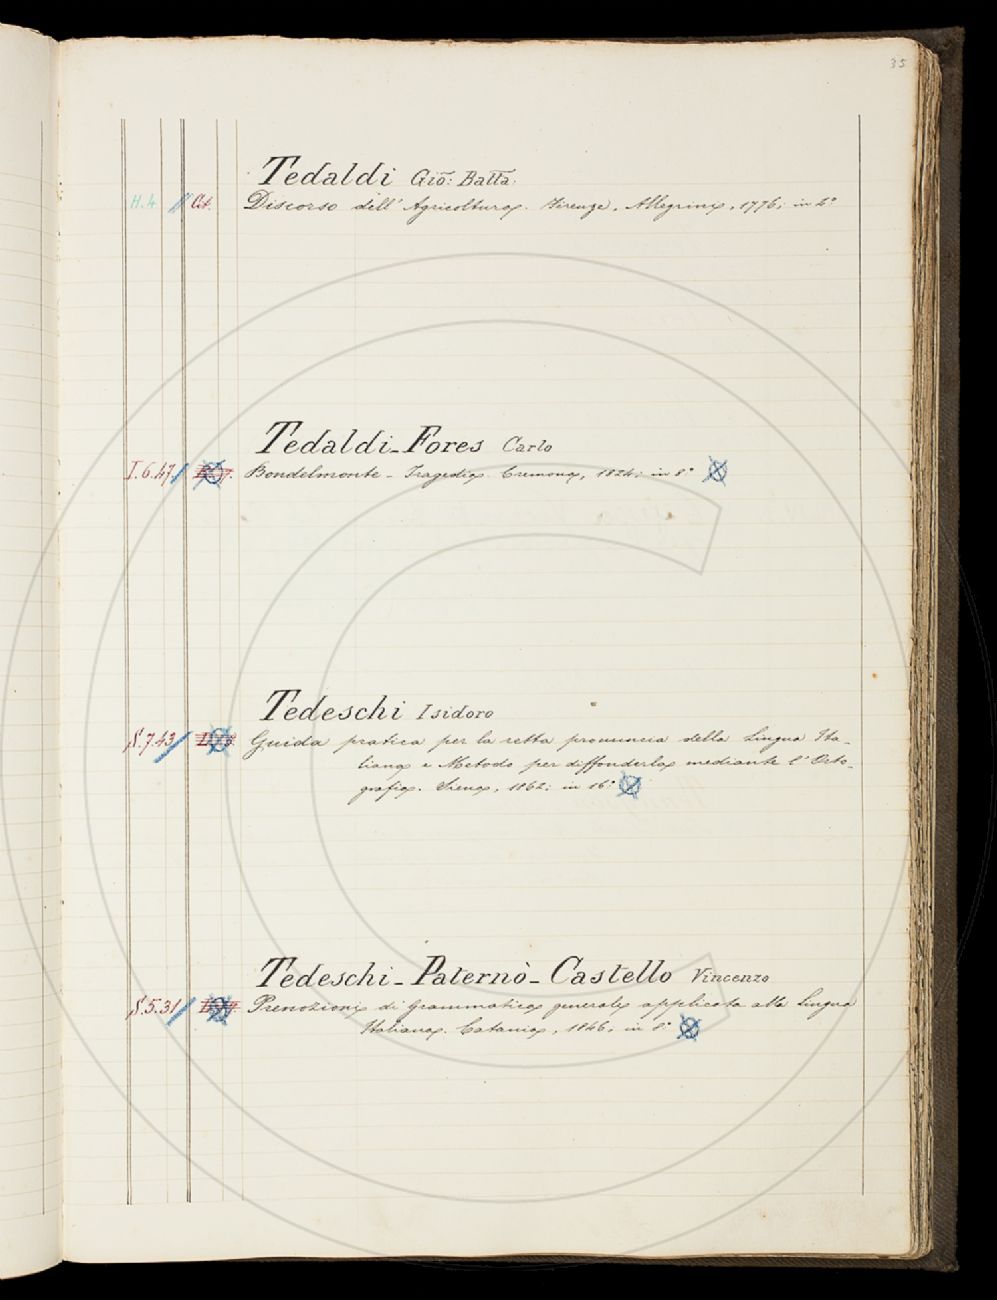 35
Tedaldi Gio: Batta:
H. 4 Cit. Discorso dell' Agricoltura. Firenze, Allegrini, 1776; in 4°
Tedaldi-Fores Carlo
I.6.47 Bondelmonte - Tragedia. Cremona, 1824; in 8°
Tedeschi Isidoro
S.7.43 Guida pratica per la retta pronuncia della Lingua Ita-
liana e Metodo per diffonderla mediante l' Orto-
grafia. Siena, 1862; in 16°
Tedeschi-Paternò-Castello Vincenzo
S.5.31 Prenozioni di Grammatica generale applicata alla Lingua
Italiana. Catania, 1846, in 8°